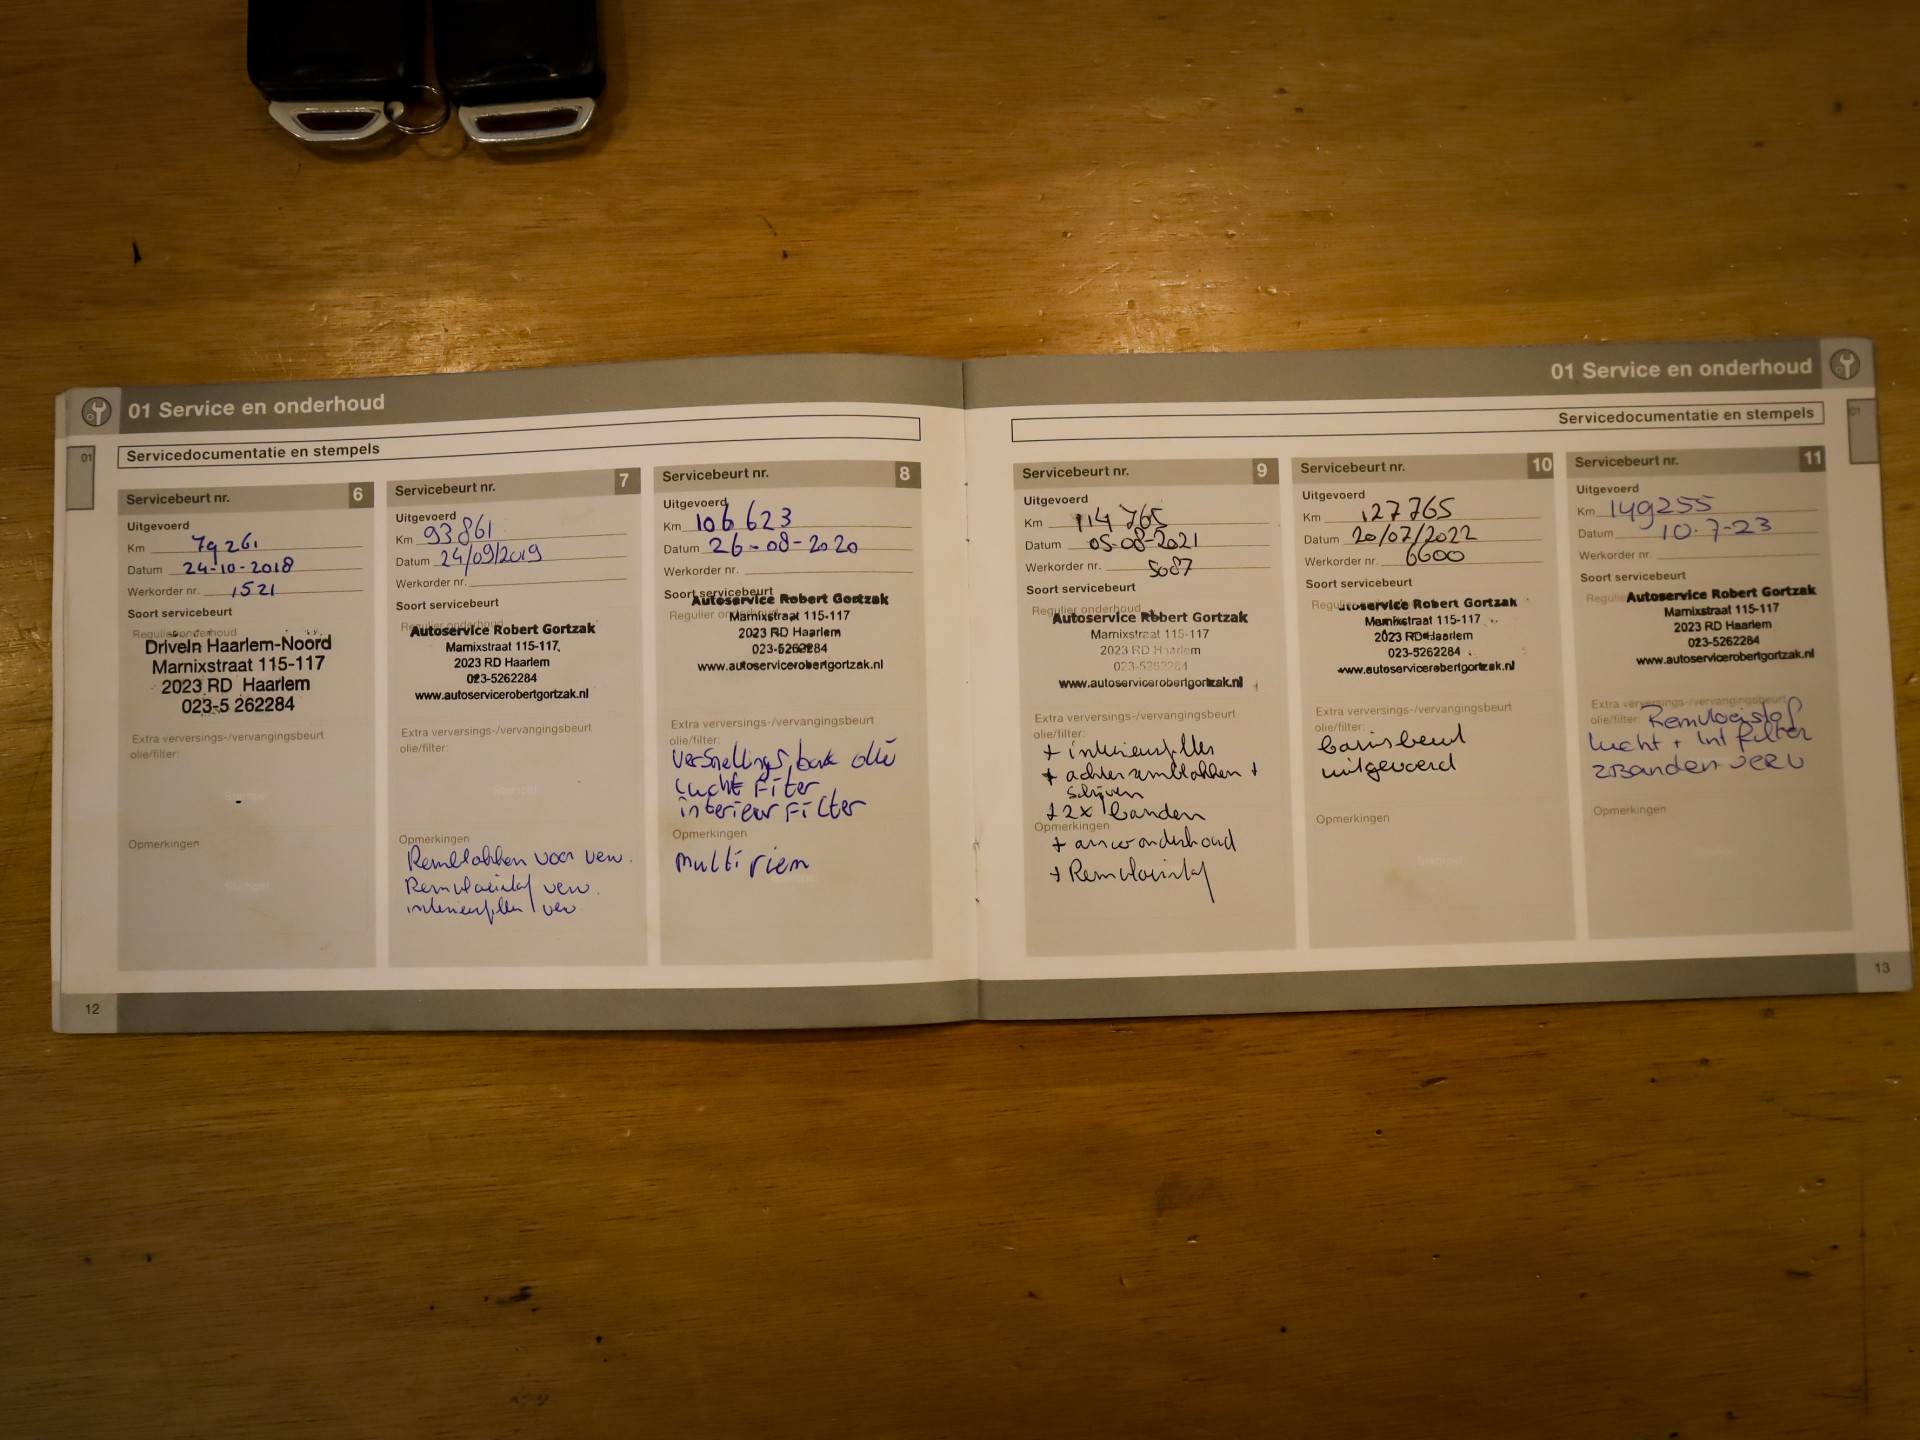 01 Service en onderhoud
01
Servicedocumentatie en stempels
Servicebeurt nr. 6
Uitgevoerd
Km 79261
Datum 24-10-2018
Werkorder nr. 1521
Soort servicebeurt
Regulier onderhoud
DriveIn Haarlem-Noord
Marnixstraat 115-117
2023 RD Haarlem
023-5 262284
Extra verversings-/vervangingsbeurt
olie/filter:
Stempel
Opmerkingen
Stempel
Servicebeurt nr. 7
Uitgevoerd
Km 93861
Datum 24/09/2019
Werkorder nr.
Soort servicebeurt
Regulier onderhoud
Autoservice Robert Gortzak
Marnixstraat 115-117
2023 RD Haarlem
023-5262284
www.autoservicerobertgortzak.nl
Extra verversings-/vervangingsbeurt
olie/filter:
Stempel
Opmerkingen
Remblokken voor verv.
Remvloeistof verv.
interieurfilter verv
Servicebeurt nr. 8
Uitgevoerd
Km 106623
Datum 26-08-2020
Werkorder nr.
Soort servicebeurt
Regulier onderhoud
Autoservice Robert Gortzak
Marnixstraat 115-117
2023 RD Haarlem
023-5262284
www.autoservicerobertgortzak.nl
Extra verversings-/vervangingsbeurt
olie/filter:
versnellings bak olie
lucht Filter
interieur Filter
Opmerkingen
multi riem
12
01 Service en onderhoud
01
Servicedocumentatie en stempels
Servicebeurt nr. 9
Uitgevoerd
Km 114765
Datum 05-08-2021
Werkorder nr. 5087
Soort servicebeurt
Regulier onderhoud
Autoservice Robert Gortzak
Marnixstraat 115-117
2023 RD Haarlem
023-5262284
www.autoservicerobertgortzak.nl
Extra verversings-/vervangingsbeurt
olie/filter:
+ interieurfilter
+ achter remblokken +
schijven
+ 2x banden
Opmerkingen
+ airco onderhoud
+ Remvloeistof
Servicebeurt nr. 10
Uitgevoerd
Km 127765
Datum 20/07/2022
Werkorder nr. 6600
Soort servicebeurt
Autoservice Robert Gortzak
Marnixstraat 115-117
2023 RD Haarlem
023-5262284
www.autoservicerobertgortzak.nl
Extra verversings-/vervangingsbeurt
olie/filter:
basisbeurt
uitgevoerd
Opmerkingen
Stempel
Servicebeurt nr. 11
Uitgevoerd
Km 149255
Datum 10-7-23
Werkorder nr.
Soort servicebeurt
Autoservice Robert Gortzak
Marnixstraat 115-117
2023 RD Haarlem
023-5262284
www.autoservicerobertgortzak.nl
Extra verversings-/vervangingsbeurt
olie/filter: Remvloeistof
lucht + int filter
2 Banden verv
Opmerkingen
13